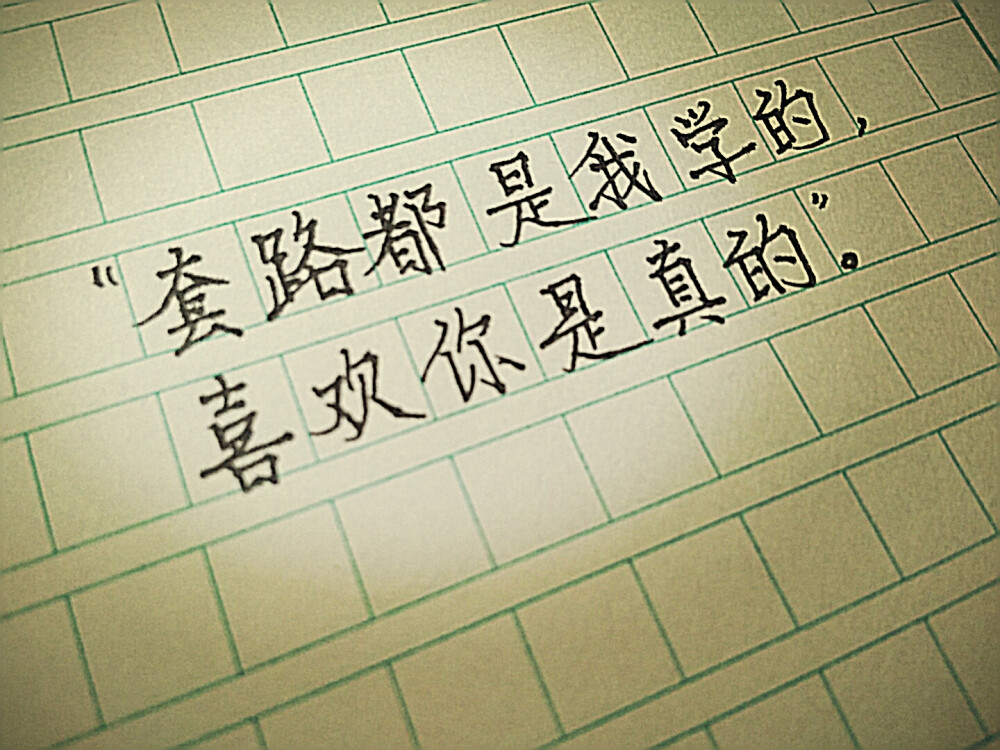 “套路都是我学的，
喜欢你是真的”。